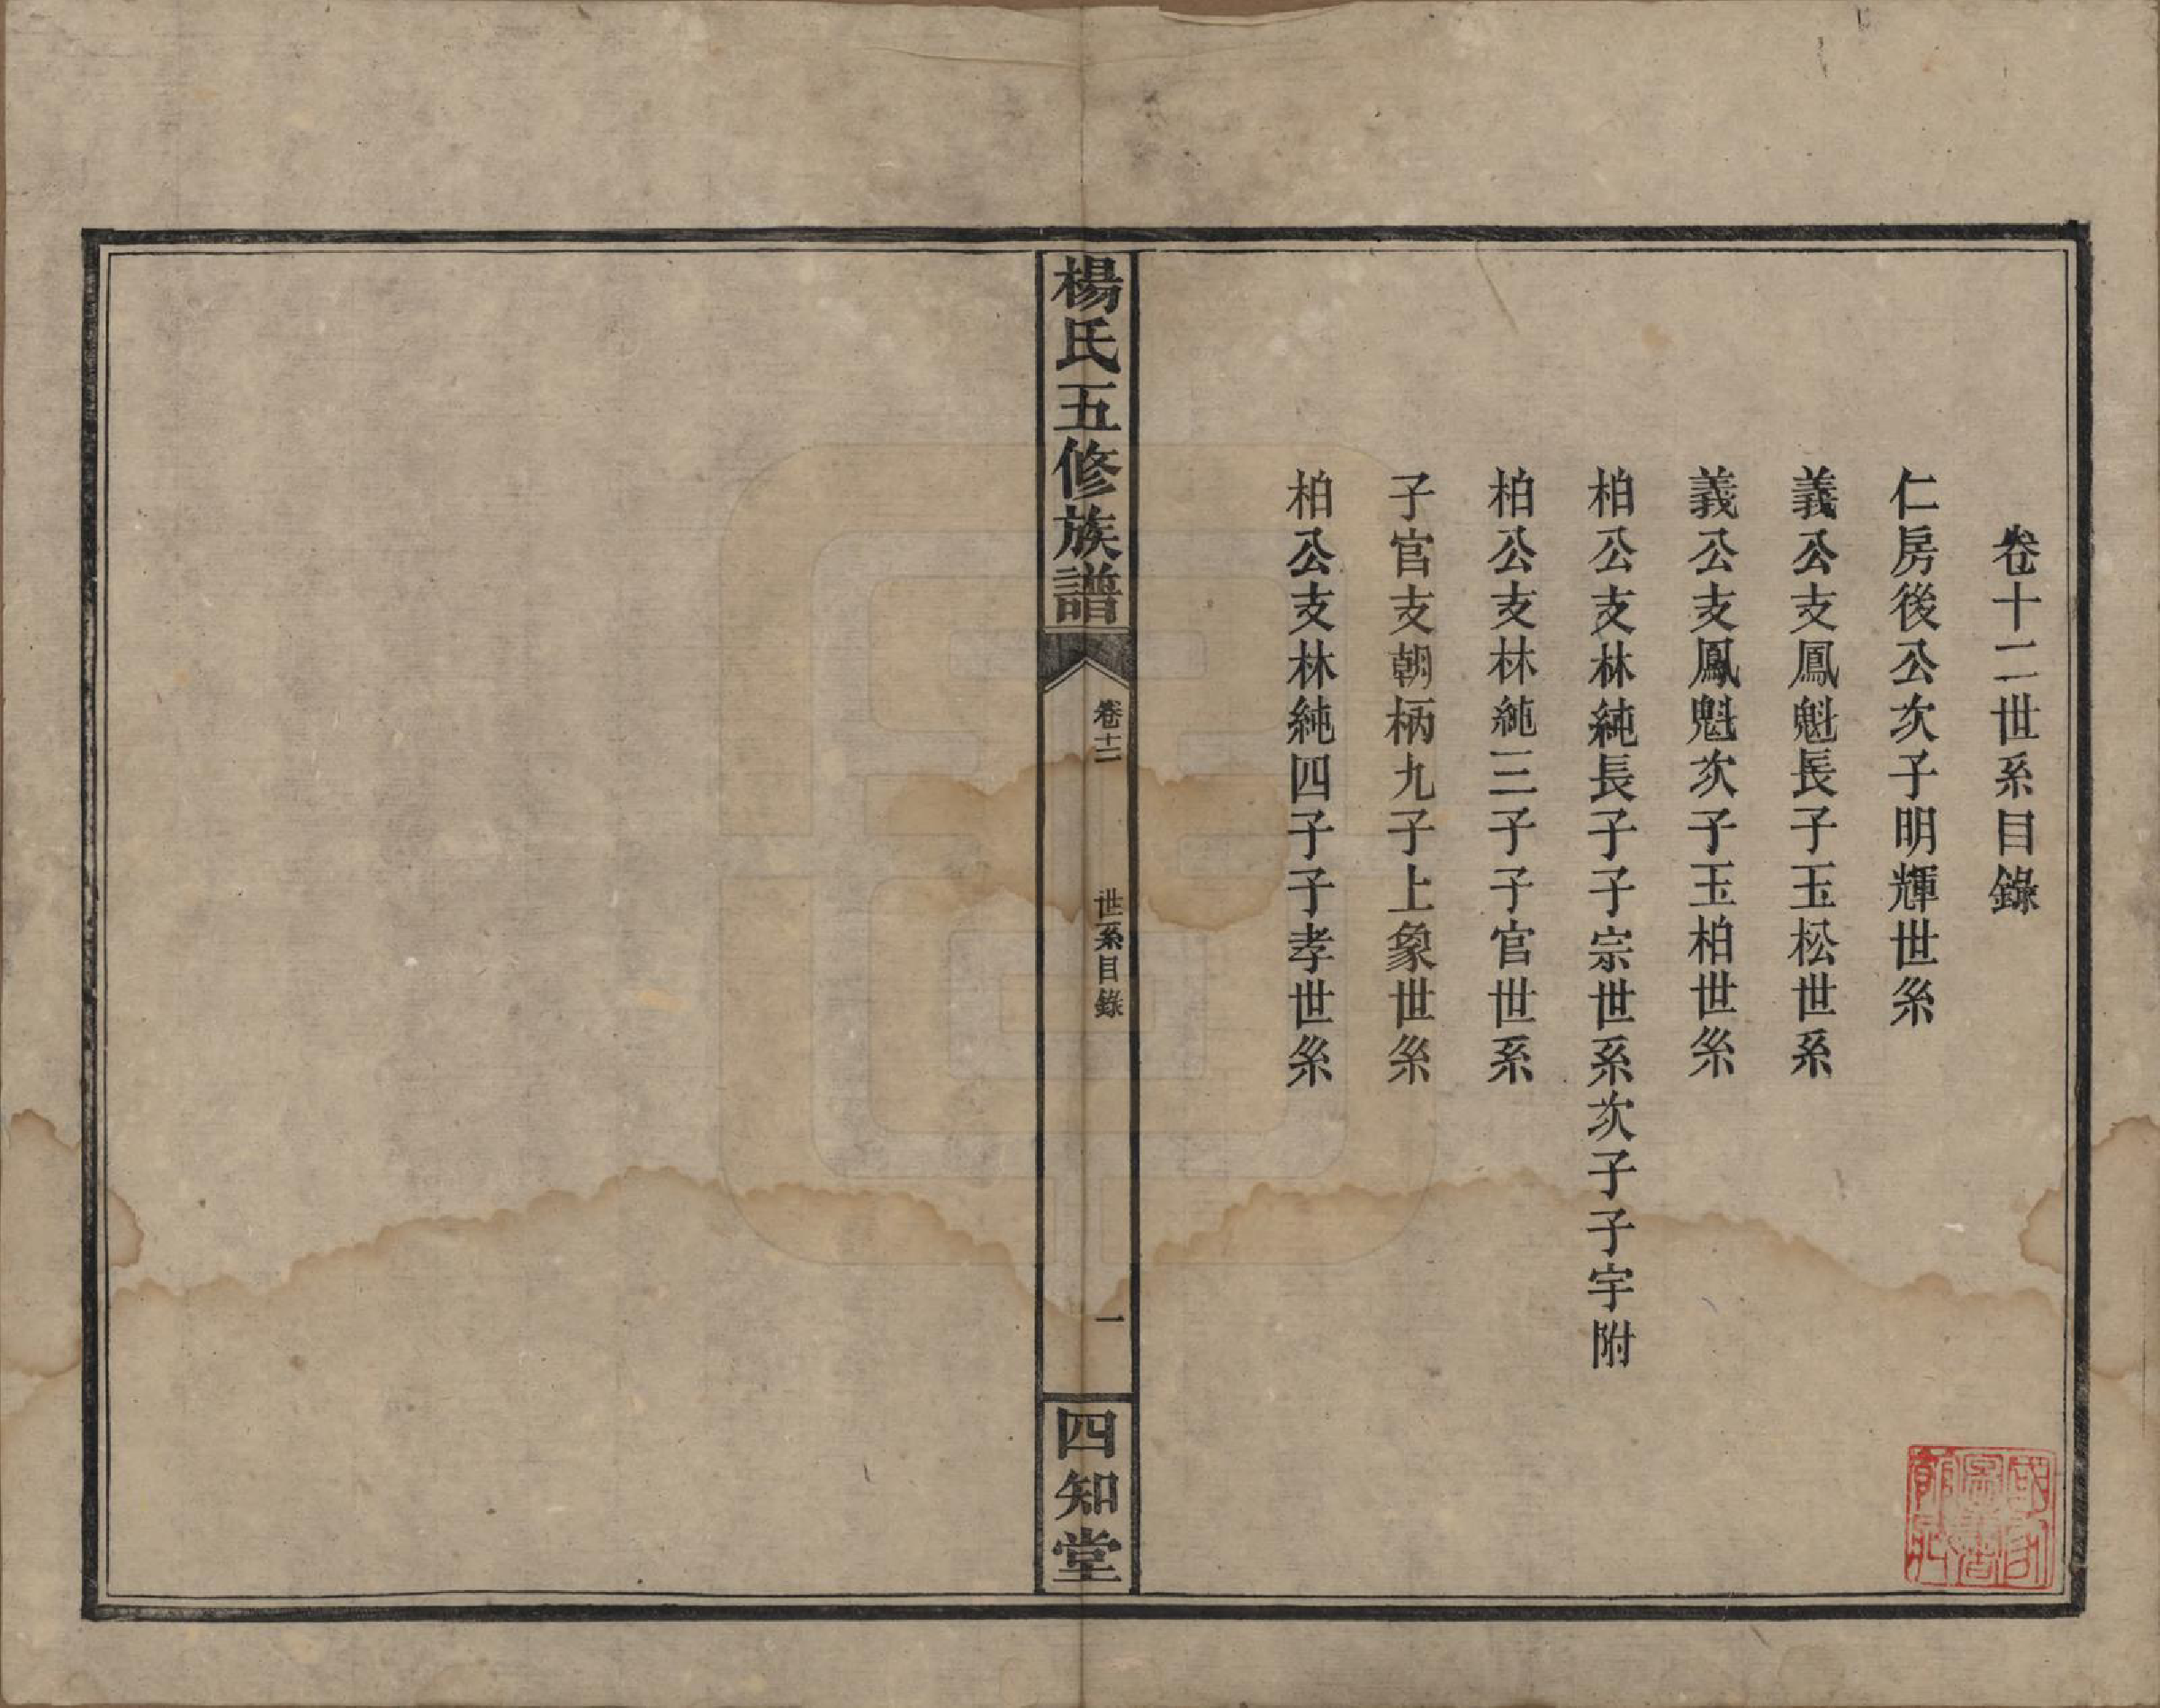 卷十二世系目錄
仁房後公次子明輝世系
義公支鳳魁長子玉松世系
義公支鳳魁次子玉柏世系
柏公支林純長子子宗世系次子子宇附
柏公支林純三子子官世系
子官支朝柄九子上象世系
柏公支林純四子子孝世系
楊氏五修族譜
卷十二
世系目錄
一
四知堂
國家圖書館藏